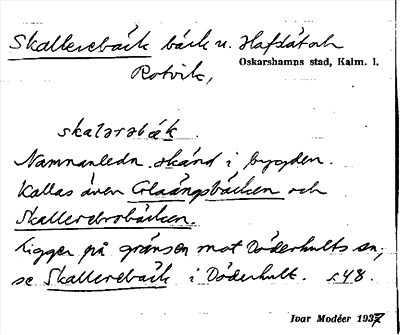 Skallerebäck bäck u. Hafslätoch
Rotvik,
Oskarshamns stad, Kalm. l.
skalərəbäk.
Namnanledn. okänd i bygden.
Kallas även Glaängsbäcken och
Skallerobrobäcken.
Ligger på gränsen mot Döderhults sn;
se Skallerebäck i Döderhult. s48.
Ivar Modéer 1937